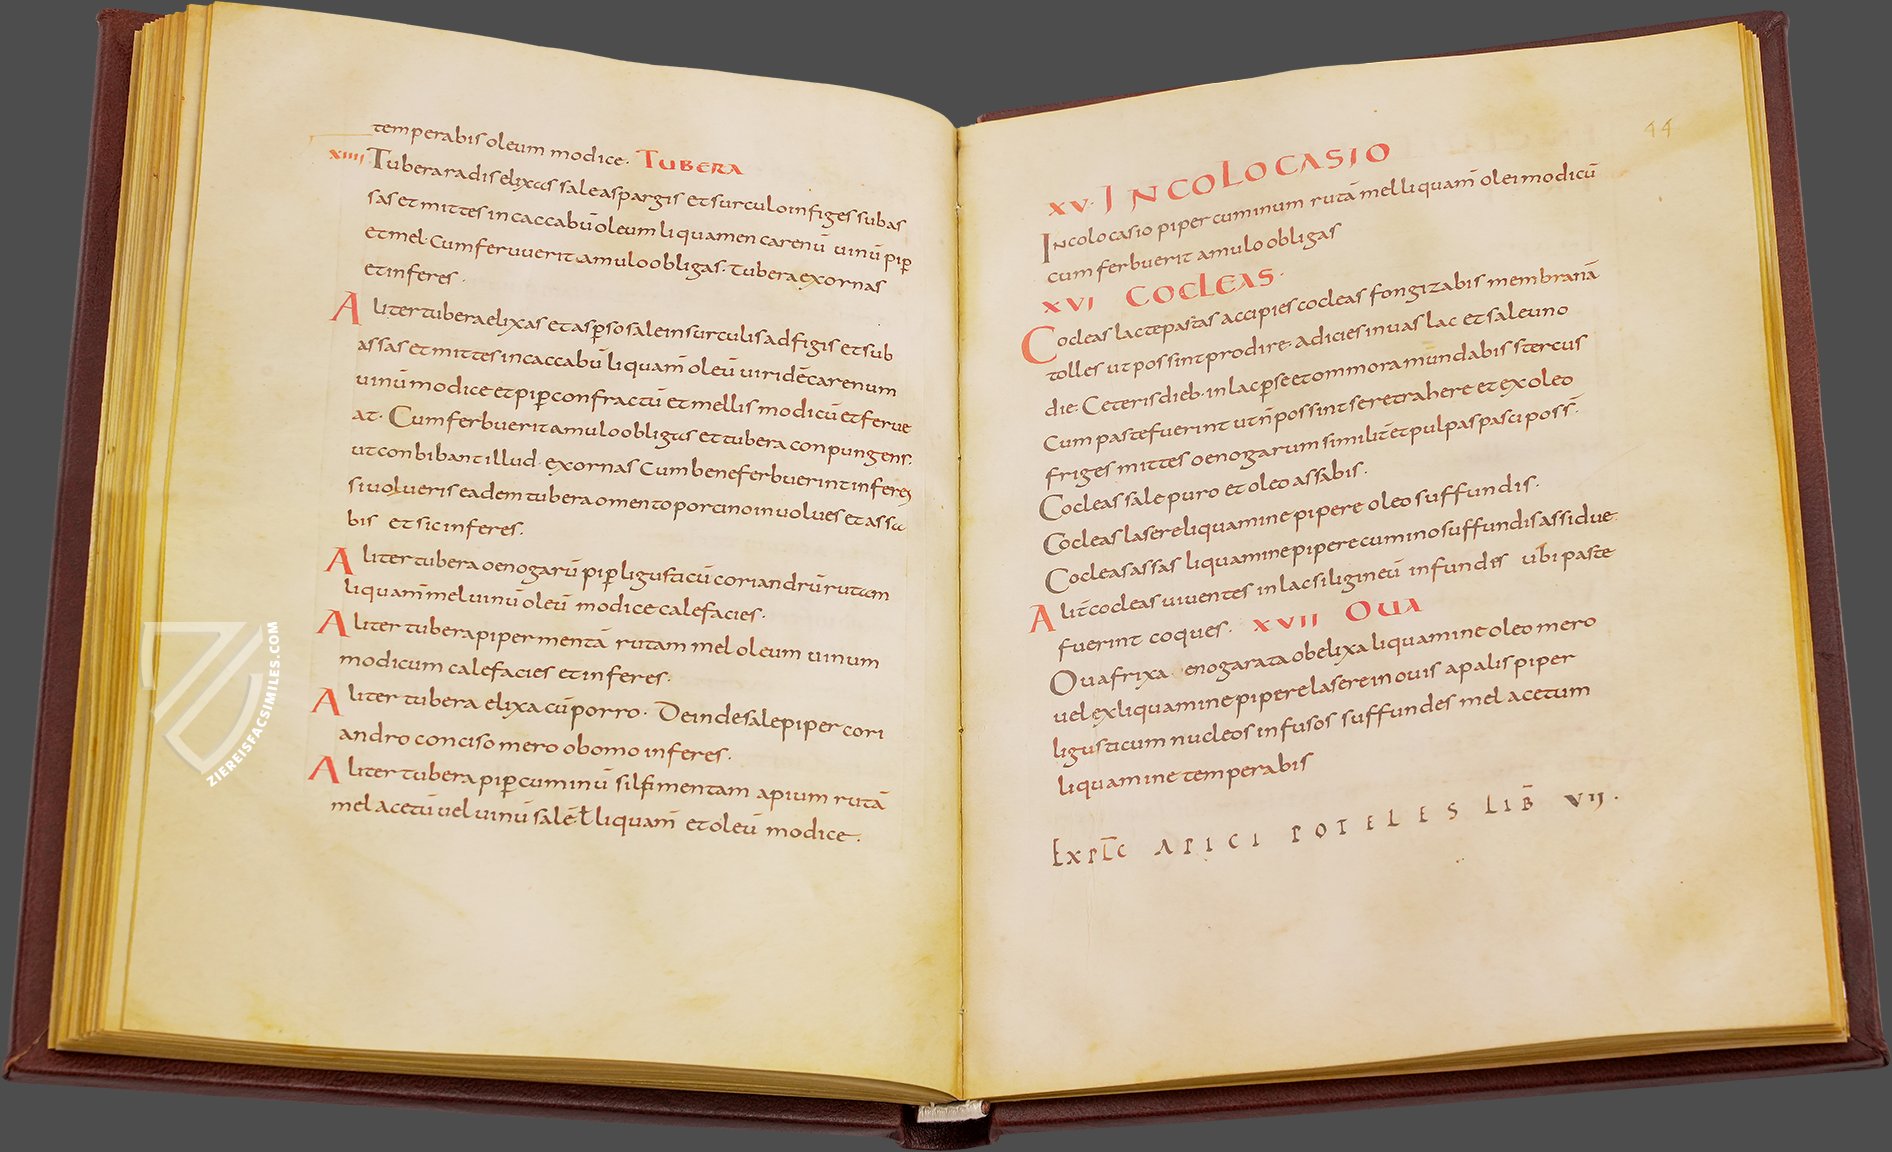 temperabis oleum modice· TUBERA
XIIII Tubera radis elixas sale aspargis et surculo infiges subas
sas et mittes in caccabū oleum liquamen carenū uinū pip̄
et mel· Cum feruuerit amulo obligas· tubera exornas
et inferes·
Aliter tubera elixas et asp̄so sale in surculis adfigis et sub
assas et mittes in caccabū liquam̄ oleū uiridē carenum
uinū modice et pip̄ confractū et mellis modicū et ferue
at· Cum ferbuerit amulo obligas et tubera conpungens·
ut conbibant illud· exornas Cum bene ferbuerint inferes
si uolueris eadem tubera omento porcino inuolues et assa
bis et sic inferes·
Aliter tubera oenogarū pip̄ ligusticū coriandrū rutam
liquam̄ mel uinū oleū modice calefacies·
Aliter tubera piper mentā rutam mel oleum uinum
modicum calefacies et inferes·
Aliter tubera elixa cū porro· Deinde sale piper cori
andro conciso mero obomo inferes·
Aliter tubera pip̄ cuminū silfi mentam apium rutā
mel acetū uel uinū salē ł liquam̄ et oleū modice·
44
XV· IN COLOCASIO
In colocasio piper cuminum rutā mel liquam̄ olei modicū
cum ferbuerit amulo obligas
XVI COCLEAS·
Cocleas lacte pastas accipies cocleas fongizabis membranā
tolles ut possint prodire· adicies in uas lac et sale uno
die· Ceteris dieb· in lac p̄se et ommora mundabis stercus
Cum paste fuerint ut ñ possint se retrahere et ex oleo
friges mittes oenogarum similit̄ et pulpas pasci poss̄·
Cocleas sale puro et oleo assabis·
Cocleas lasere liquamine pipere oleo suffundis·
Cocleas assas liquamine pipere cumino suffundis assidue·
Alit̄ cocleas uiuentes in lac siligineū infundis ubi paste
fuerint coques· XVII OUA
Oua frixa enogarata obelixa liquamine oleo mero
uel ex liquamine pipere lasere in ouis apalis piper
ligusticum nucleos infusos suffundes mel acetum
liquamine temperabis
EXPLC̄ APICI POTELES LIB̄ VII·
ZIEREISFACSIMILES.COM